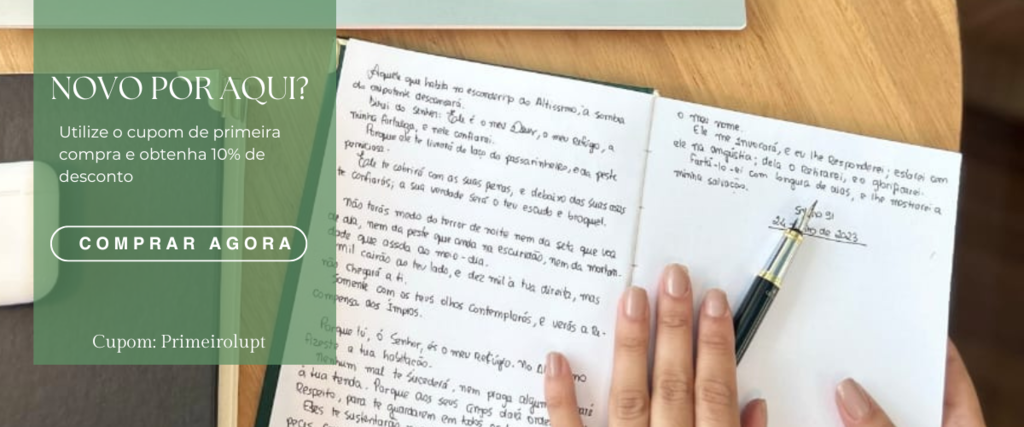 NOVO POR AQUI?
Utilize o cupom de primeira
compra e obtenha 10% de
desconto
COMPRAR AGORA
Cupom: Primeirolupt
Aquele que habita no esconderijo do Altíssimo, à sombra
do onipotente descansará.
Direi do Senhor: Ele é o meu Deus, o meu Refúgio, a
minha fortaleza, e nele confiarei.
Porque ele te livrará do laço do passarinheiro, e da peste
perniciosa.
Ele te cobrirá com as suas penas, e debaixo das suas asas
te confiarás; a sua verdade será o teu escudo e broquel.
Não terás medo do terror de noite nem da seta que voa
de dia, nem da peste que anda na escuridão, nem da mortan-
dade que assola ao meio-dia.
mil cairão ao teu lado, e dez mil à tua direita, mas
não chegará a ti.
Somente com os teus olhos contemplarás, e verás a Re-
compensa dos Ímpios.
Porque tu, ó Senhor, és o meu Refúgio. No
a tua habitação.
Nenhum mal te sucederá, nem praga alguma
à tua tenda. Porque aos seus anjos dará
Respeito, para te guardarem em todos os
Eles te sustentarão
o meu nome.
Ele me invocará, e eu lhe Responderei; estarei com
ele na angústia; dela o Retirarei, e o glorificarei.
Fartá-lo-ei com longura de dias, e lhe mostrarei a
minha salvação.
Salmo 91
24 de 2023